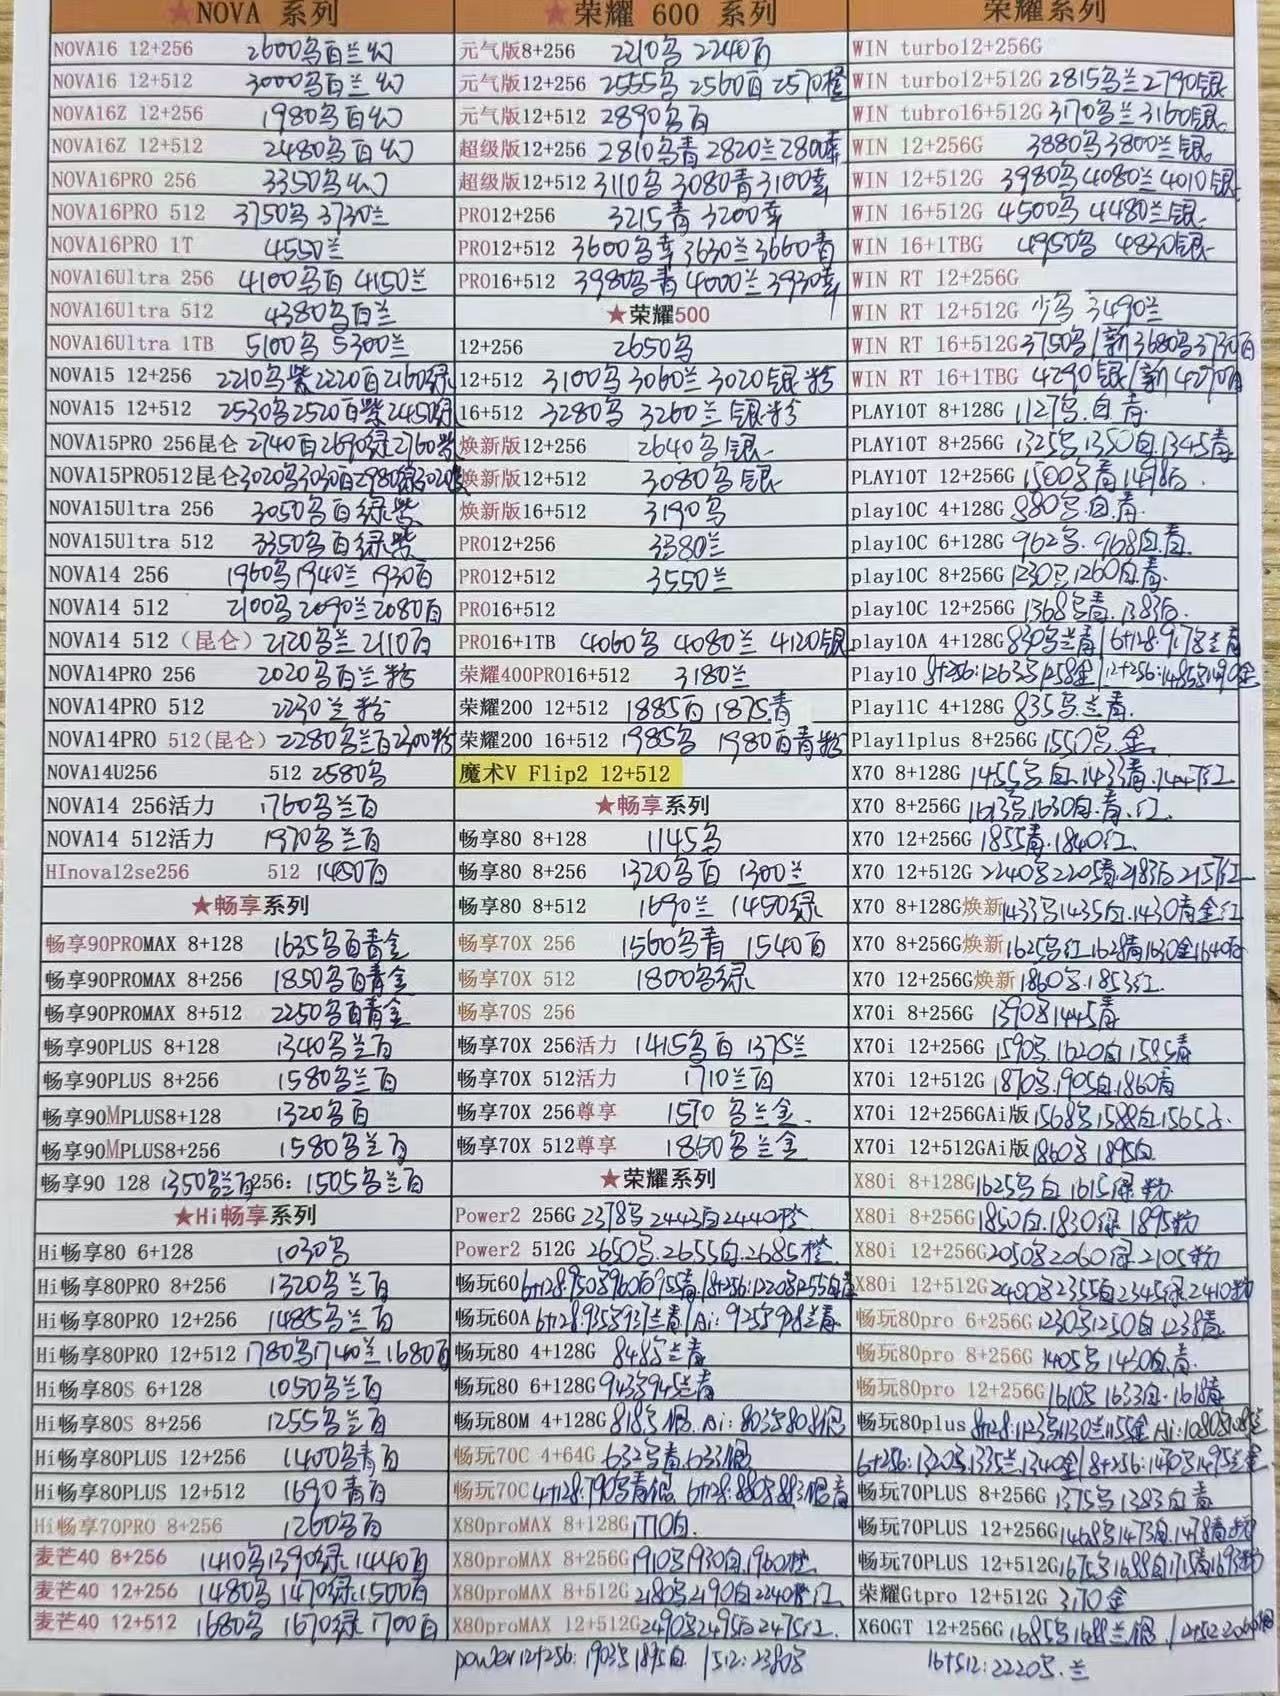 ★NOVA 系列
NOVA16 12+256 2600乌百兰幻
NOVA16 12+512 3000乌百兰幻
NOVA16Z 12+256 1980乌百幻
NOVA16Z 12+512 2480乌百幻
NOVA16PRO 256 3350乌幻
NOVA16PRO 512 3750乌 3730兰
NOVA16PRO 1T 4550兰
NOVA16Ultra 256 4100乌百 4150兰
NOVA16Ultra 512 4380乌百兰
NOVA16Ultra 1TB 5100乌 5300兰
NOVA15 12+256 2210乌紫2220百2160绿
NOVA15 12+512 2530乌2520百紫2450绿
NOVA15PRO 256昆仑 2740百2690绿2760紫
NOVA15PRO512昆仑3020乌3030百2980绿3020紫
NOVA15Ultra 256 3050乌百绿紫
NOVA15Ultra 512 3350乌百绿紫
NOVA14 256 1960乌1940兰 1930百
NOVA14 512 2100乌2090兰2080百
NOVA14 512（昆仑）2120乌兰2110百
NOVA14PRO 256 2020乌百兰粉
NOVA14PRO 512 2230兰粉
NOVA14PRO 512(昆仑) 2280乌兰百2300粉
NOVA14U256 512 2580乌
NOVA14 256活力 1760乌兰百
NOVA14 512活力 1970乌兰百
HInova12se256 512 1480百
★畅享系列
畅享90PROMAX 8+128 1635乌百青金
畅享90PROMAX 8+256 1850乌百青金
畅享90PROMAX 8+512 2250乌百青金
畅享90PLUS 8+128 1340乌兰百
畅享90PLUS 8+256 1580乌兰百
畅享90MPLUS8+128 1320乌百
畅享90MPLUS8+256 1580乌兰百
畅享90 128 1350乌兰百256: 1505乌兰百
★Hi畅享系列
Hi畅享80 6+128 1030乌
Hi畅享80PRO 8+256 1320乌兰百
Hi畅享80PRO 12+256 1485乌兰百
Hi畅享80PRO 12+512 1780乌1740兰1680百
Hi畅享80S 6+128 1050乌兰百
Hi畅享80S 8+256 1255乌兰百
Hi畅享80PLUS 12+256 1400乌青百
Hi畅享80PLUS 12+512 1690青百
Hi畅享70PRO 8+256 1260乌百
麦芒40 8+256 1410乌1390绿1440百
麦芒40 12+256 1480乌1470绿1500百
麦芒40 12+512 1680乌 1670绿1700百
★荣耀 600 系列
元气版8+256 2210乌 2240百
元气版12+256 2555乌 2560百 2570橙
元气版12+512 2890乌百
超级版12+256 2810乌青 2820兰 2800幸
超级版12+512 3110乌 3080青 3100幸
PRO12+256 3215青 3200幸
PRO12+512 3600乌幸 3630兰 3660青
PRO16+512 3980乌青 4000兰 3930幸
★荣耀500
12+256 2650乌
12+512 3100乌 3060兰 3020银粉
16+512 3280乌 3260兰 银粉
焕新版12+256 2640乌银
焕新版12+512 3080乌银
焕新版16+512 3190乌
PRO12+256 3380兰
PRO12+512 3550兰
PRO16+512
PRO16+1TB 4060乌 4080兰 4120银
荣耀400PRO16+512 3180兰
荣耀200 12+512 1885百 1875青
荣耀200 16+512 1985乌 1980百青粉
魔术V Flip2 12+512
★畅享系列
畅享80 8+128 1145乌
畅享80 8+256 1320乌百 1300兰
畅享80 8+512 1690兰 1450绿
畅享70X 256 1560乌青 1540百
畅享70X 512 1800乌绿
畅享70S 256
畅享70X 256活力 1415乌百 1375兰
畅享70X 512活力 1710兰百
畅享70X 256尊享 1570 乌兰金
畅享70X 512尊享 1850乌兰金
★荣耀系列
Power2 256G 2378乌2443白2440橙
Power2 512G 2650乌.2655白.2685橙
畅玩60 6+128:950乌960白955青/8+256:1220乌1255白青
畅玩60A 6+128:935乌937兰青/Ai:925乌928兰青
畅玩80 4+128G 848乌兰青
畅玩80 6+128G 943乌945兰青
畅玩80M 4+128G818乌银.Ai:803乌808银
畅玩70C 4+64G 632乌青.633银
畅玩70C 4+128:790乌青银 6+128:880乌883银青
X80proMAX 8+128G1710白.
X80proMAX 8+256G1910乌1930白.1960橙
X80proMAX 8+512G2180乌2190白2240橙红
X80proMAX 12+512G2490乌2495白2475红.
power12+256:1903乌1895白 /512:2380乌
荣耀系列
WIN turbo12+256G
WIN turbo12+512G 2815乌兰2790银
WIN tubro16+512G 3170乌兰3160银
WIN 12+256G 3880乌3800兰银
WIN 12+512G 3980乌4080兰4010银
WIN 16+512G 4500乌 4480兰银
WIN 16+1TBG 4950乌 4830银
WIN RT 12+256G
WIN RT 12+512G 少乌 3490兰
WIN RT 16+512G 3750乌/新3680乌3730百
WIN RT 16+1TBG 4290银/新4270百
PLAY10T 8+128G 1127乌.白.青
PLAY10T 8+256G 1325乌1350白1345青
PLAY10T 12+256G 1500乌青1498白
play10C 4+128G 880乌.白.青
play10C 6+128G 962乌.968白.青
play10C 8+256G1230乌1260白青.
play10C 12+256G 1368乌青.1383白.
play10A 4+128G830乌兰青/6+128:978兰青
Play10 8+256:1263乌1258金/12+256:1485乌1490金
Play11C 4+128G 835乌.兰青.
Play11plus 8+256G 1550乌.金
X70 8+128G 1455乌白.1433青.1447红
X70 8+256G 1613乌1630白.青.红.
X70 12+256G 1855青.1840红
X70 12+512G 2240乌2205青.2183白2157红
X70 8+128G焕新1433乌1435白.1430青金红
X70 8+256G焕新1625乌红1628青1630金1640白
X70 12+256G焕新1860乌.1853红.
X70i 8+256G 1390乌1445青
X70i 12+256G 1590乌.1620白1585青
X70i 12+512G 1870乌.1905白.1860青
X70i 12+256GAi版1568乌1588白1565青
X70i 12+512GAi版1860乌 1895白
X80i 8+128G1625乌白 1615绿粉
X80i 8+256G1850白.1830绿 1895粉
X80i 12+256G2050乌2060绿2105粉
X80i 12+512G2400乌2355白2345绿2410粉
畅玩80pro 6+256G1230乌1250白1238青
畅玩80pro 8+256G 1405乌1430白.青.
畅玩80pro 12+256G1610乌 1633白.1618青
畅玩80plus 8+128:1123乌1130兰1155金 Ai:1080乌1085兰
6+256:1320乌.1335兰1340金/8+256:1470乌1495兰金
畅玩70PLUS 8+256G 1375乌1383白青
畅玩70PLUS 12+256G 1468乌1473白.1478青粉
畅玩70PLUS 12+512G1675乌1688白1715青1693粉
荣耀Gtpro 12+512G 3170金
X60GT 12+256G1685乌1688兰银 /12+512:2060银
16+512:2220乌.兰